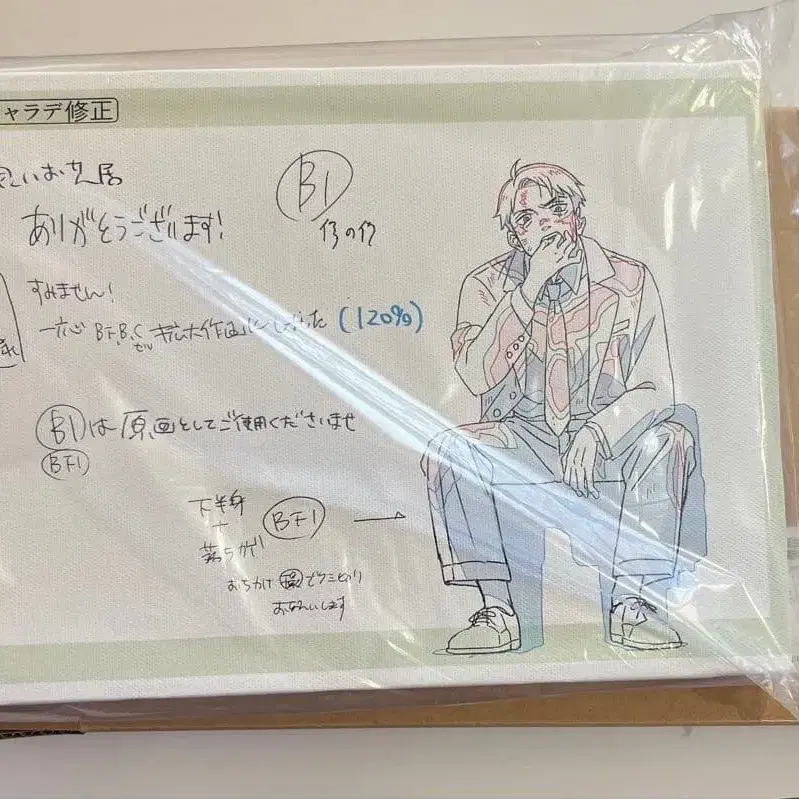 ャラデ修正
いお芝居
ありがとうございます!
B1
すみません!
一応 BF,B,C セル 拡大作画にしました (120%)
B1は原画としてご使用くださいませ
BF1
下半身
+
落ちカゲ
BF1 →
おちカゲ
おねがいします